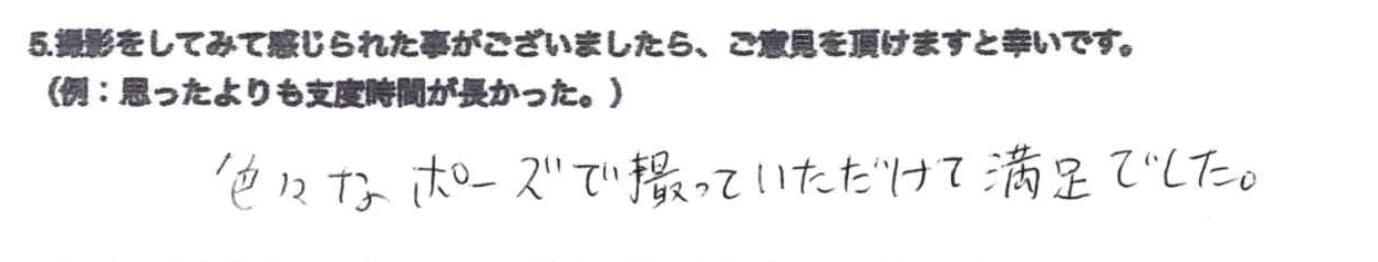 5.撮影をしてみて感じられた事がございましたら、ご意見を頂けますと幸いです。
（例：思ったよりも支度時間が長かった。）
色々なポーズで撮っていただけて満足でした。